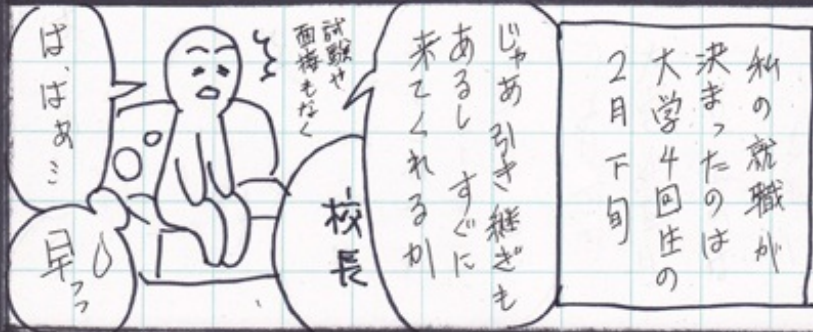 私の就職が
決まったのは
大学4回生の
2月下旬
じゃあ引き継ぎも
あるし すぐに
来てくれるか
校長
試験や
面接もなく
は、はあ…
早っっ